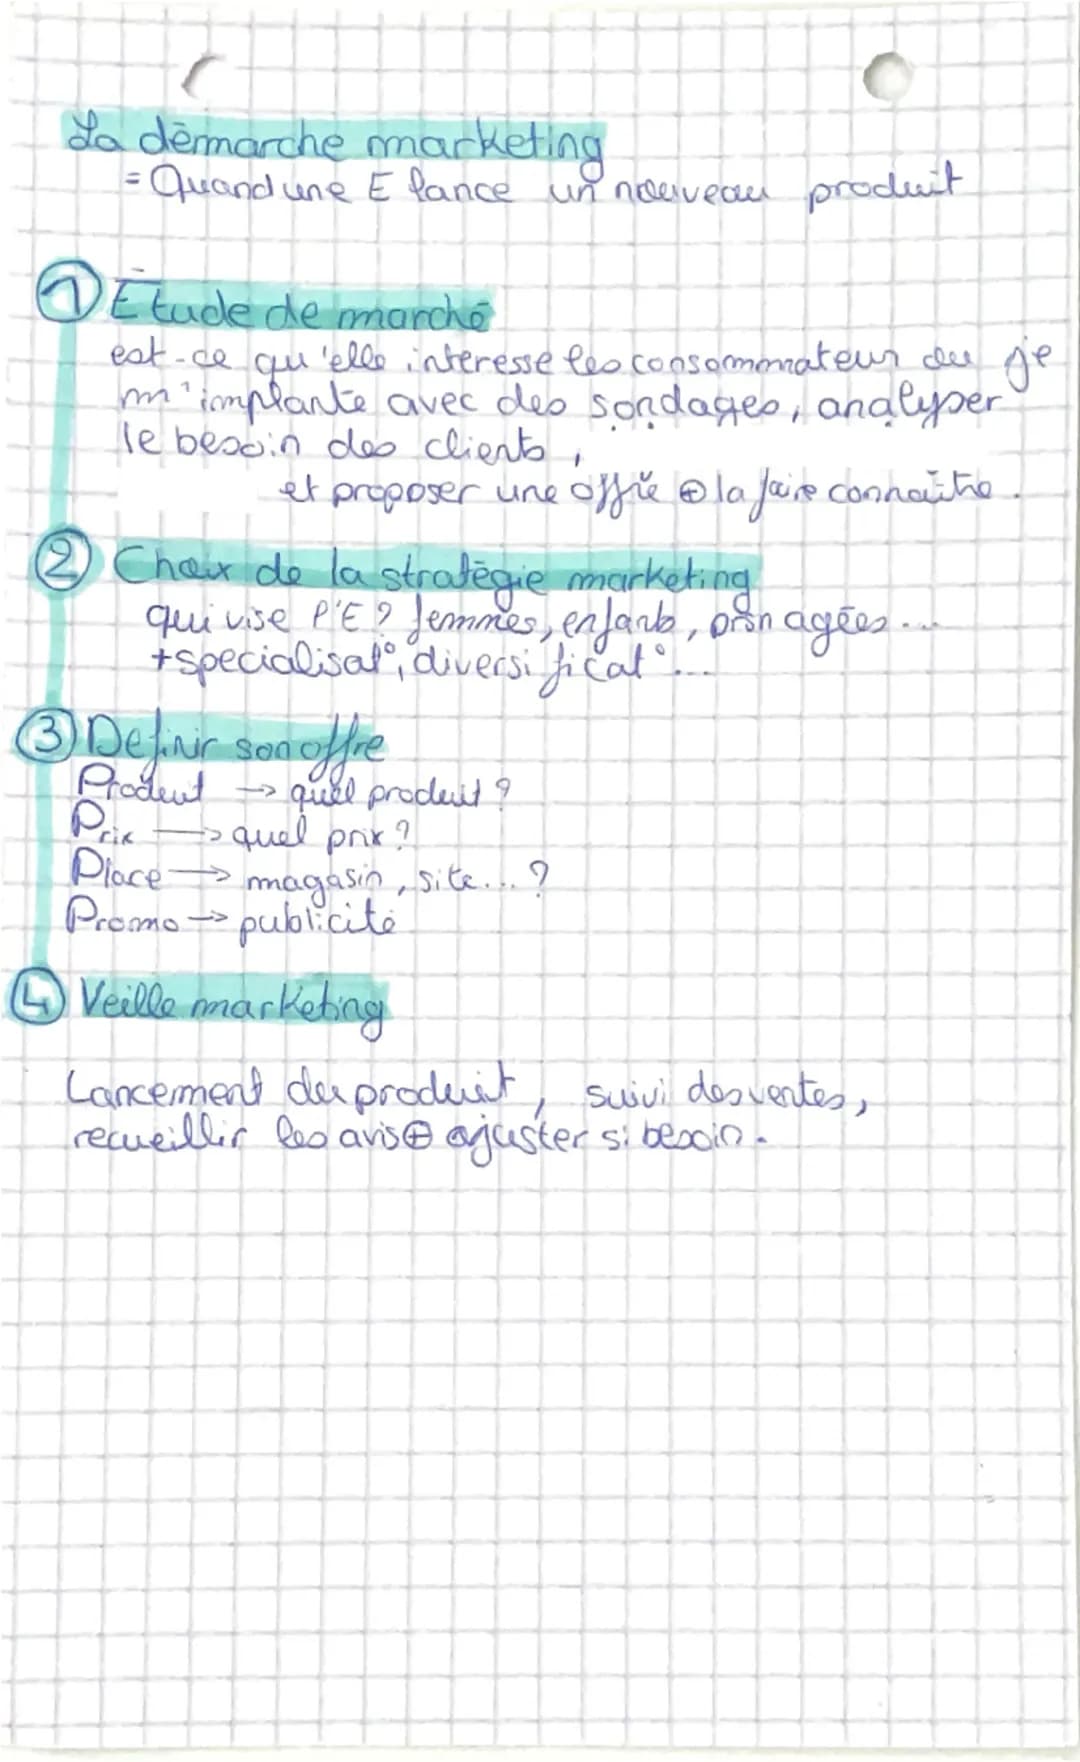 La démarche marketing
= Quand une E lance un nouveau produit
① Étude de marché
est-ce qu'elle interesse les consommateur où je
m'implante avec des sondages, analyser
le besoin des clients,
et proposer une offre ⊕ la faire connaître.
② Choix de la stratégie marketing
qui vise l'E ? femmes, enfants, prsn agées...
+ specialisat°, diversificat°...
③ Definir son offre
Produit → quel produit ?
Prix → quel prix ?
Place → magasin, site... ?
Promo → publicité
④ Veille marketing
Lancement du produit, suivi des ventes,
recueillir les avis ⊕ ajuster si besoin.